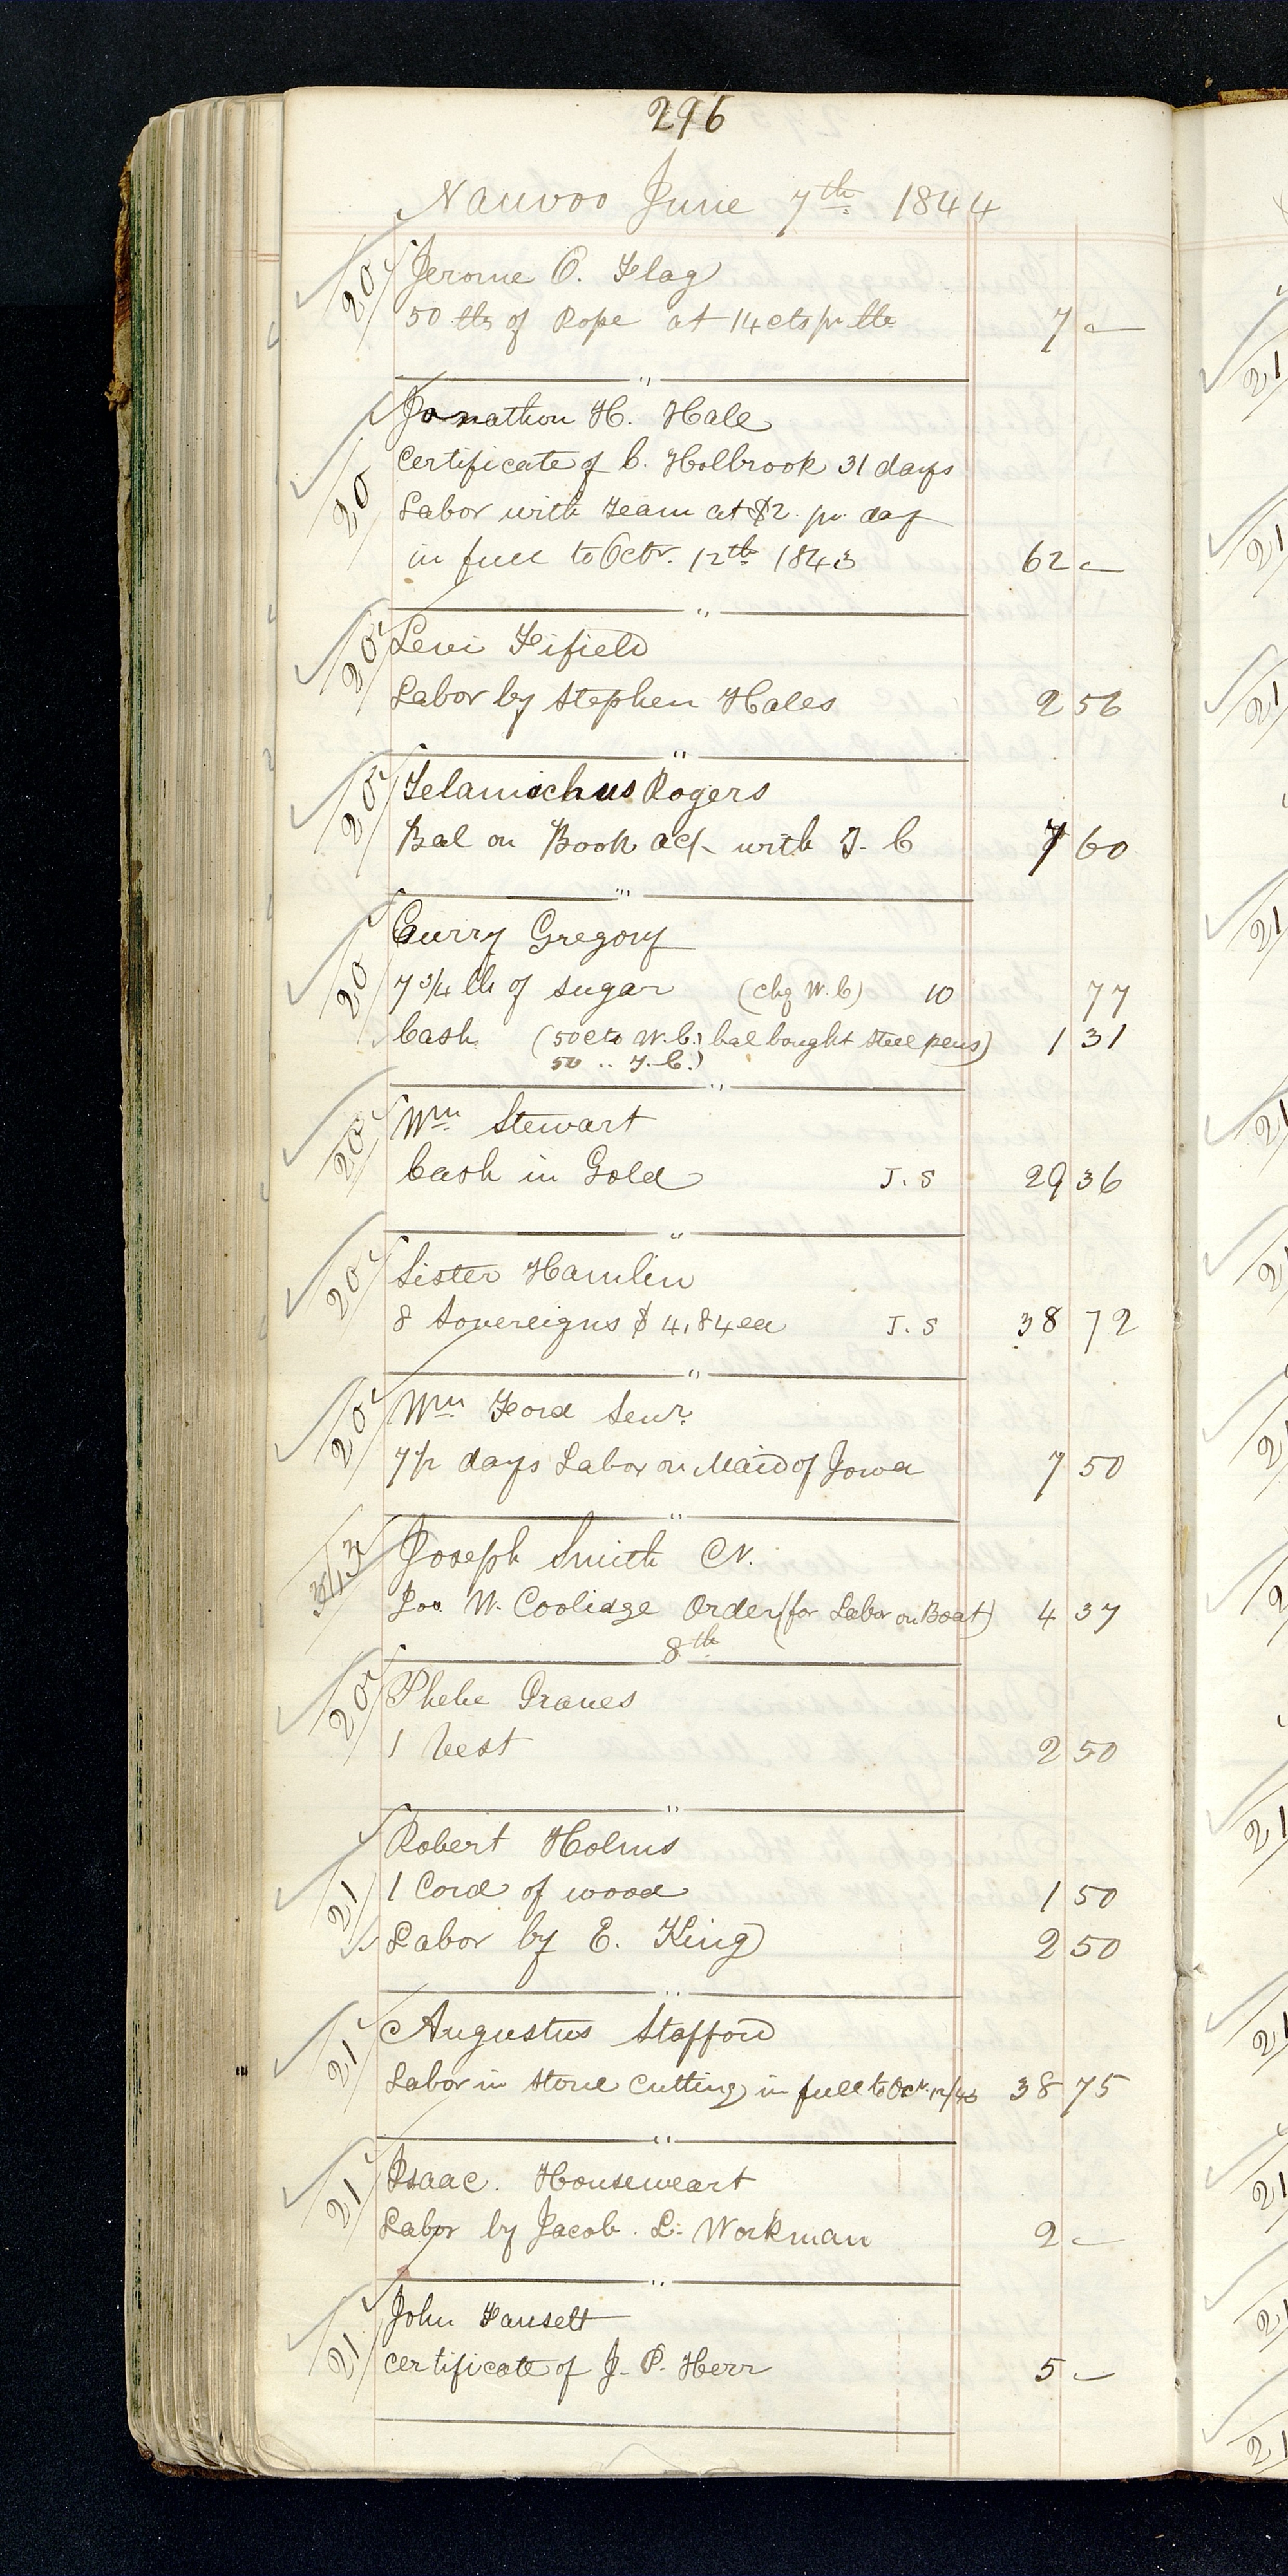 296
Nauvoo June 7th 1844
20 Jerome O. Flag
50 lbs of Rope at 14 cts pr lb 7 —
"
20 Jonathon H. Hale
Certificate of C. Holbrook 31 days
Labor with Team at $2 pr day
in full to Octr. 12th 1843 62 —
"
20 Levi Fifield
Labor by Stephen Hales 2 56
"
20 Telamichus Rogers
Bal on Book act with T. C 7 60
"
20 Curry Gregory
7 3/4 lb of sugar (chg W. C) 10 77
Cash (50 cts W. C.) bal bought steel pens) 1 31
50 .. T. C.)
"
20 Wm Stewart
Cash in Gold J. S 29 36
"
20 Sister Hamlin
8 Sovereigns $ 4,84 ea J. S 38 72
"
20 Wm Ford Senr.
7 1/2 days Labor on Maid of Iowa 7 50
"
Joseph Smith Cr.
Jos. W. Coolidge Order (for Labor on Boat) 4 37
8th
20 Phebe Graves
1 Vest 2 50
"
21 Robert Holms
1 Cord of wood 1 50
Labor by E. King 2 50
"
21 Augustus Stafford
Labor in Stone Cutting in full to Oct. 12/43 38 75
"
21 Isaac. Houseweart
Labor by Jacob. L. Workman 2 —
"
21 John Fausett
certificate of J. P. Herr 5 —
21
21
21
21
21
21
21
21
21
21
21
21